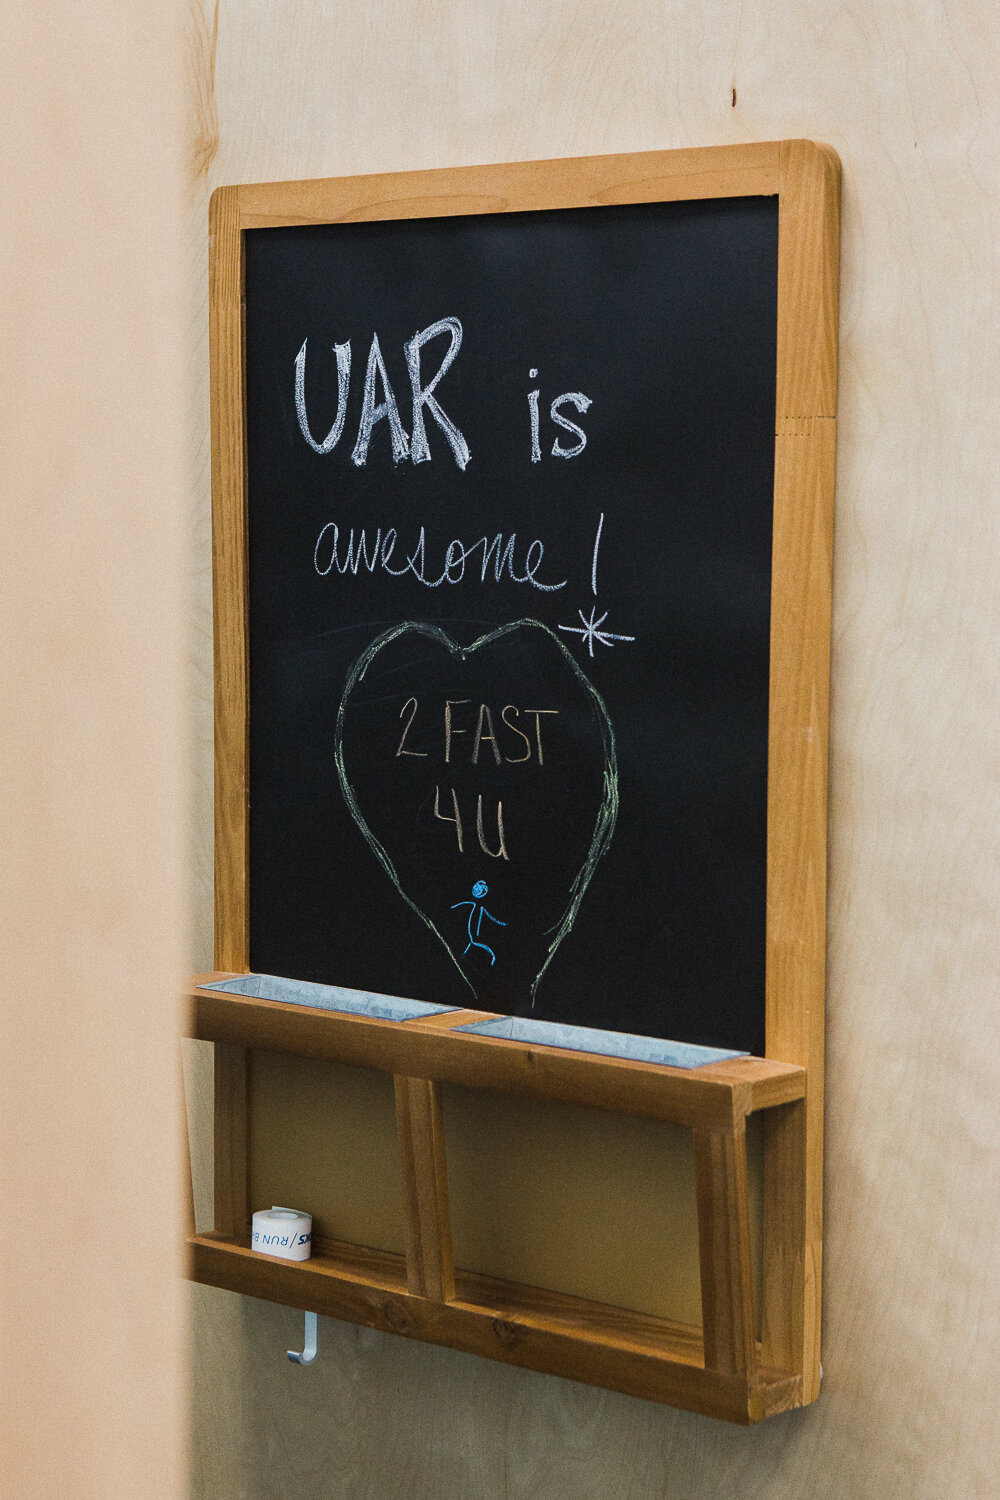 UAR is
awesome!
2 FAST
4U
KS/RUN B